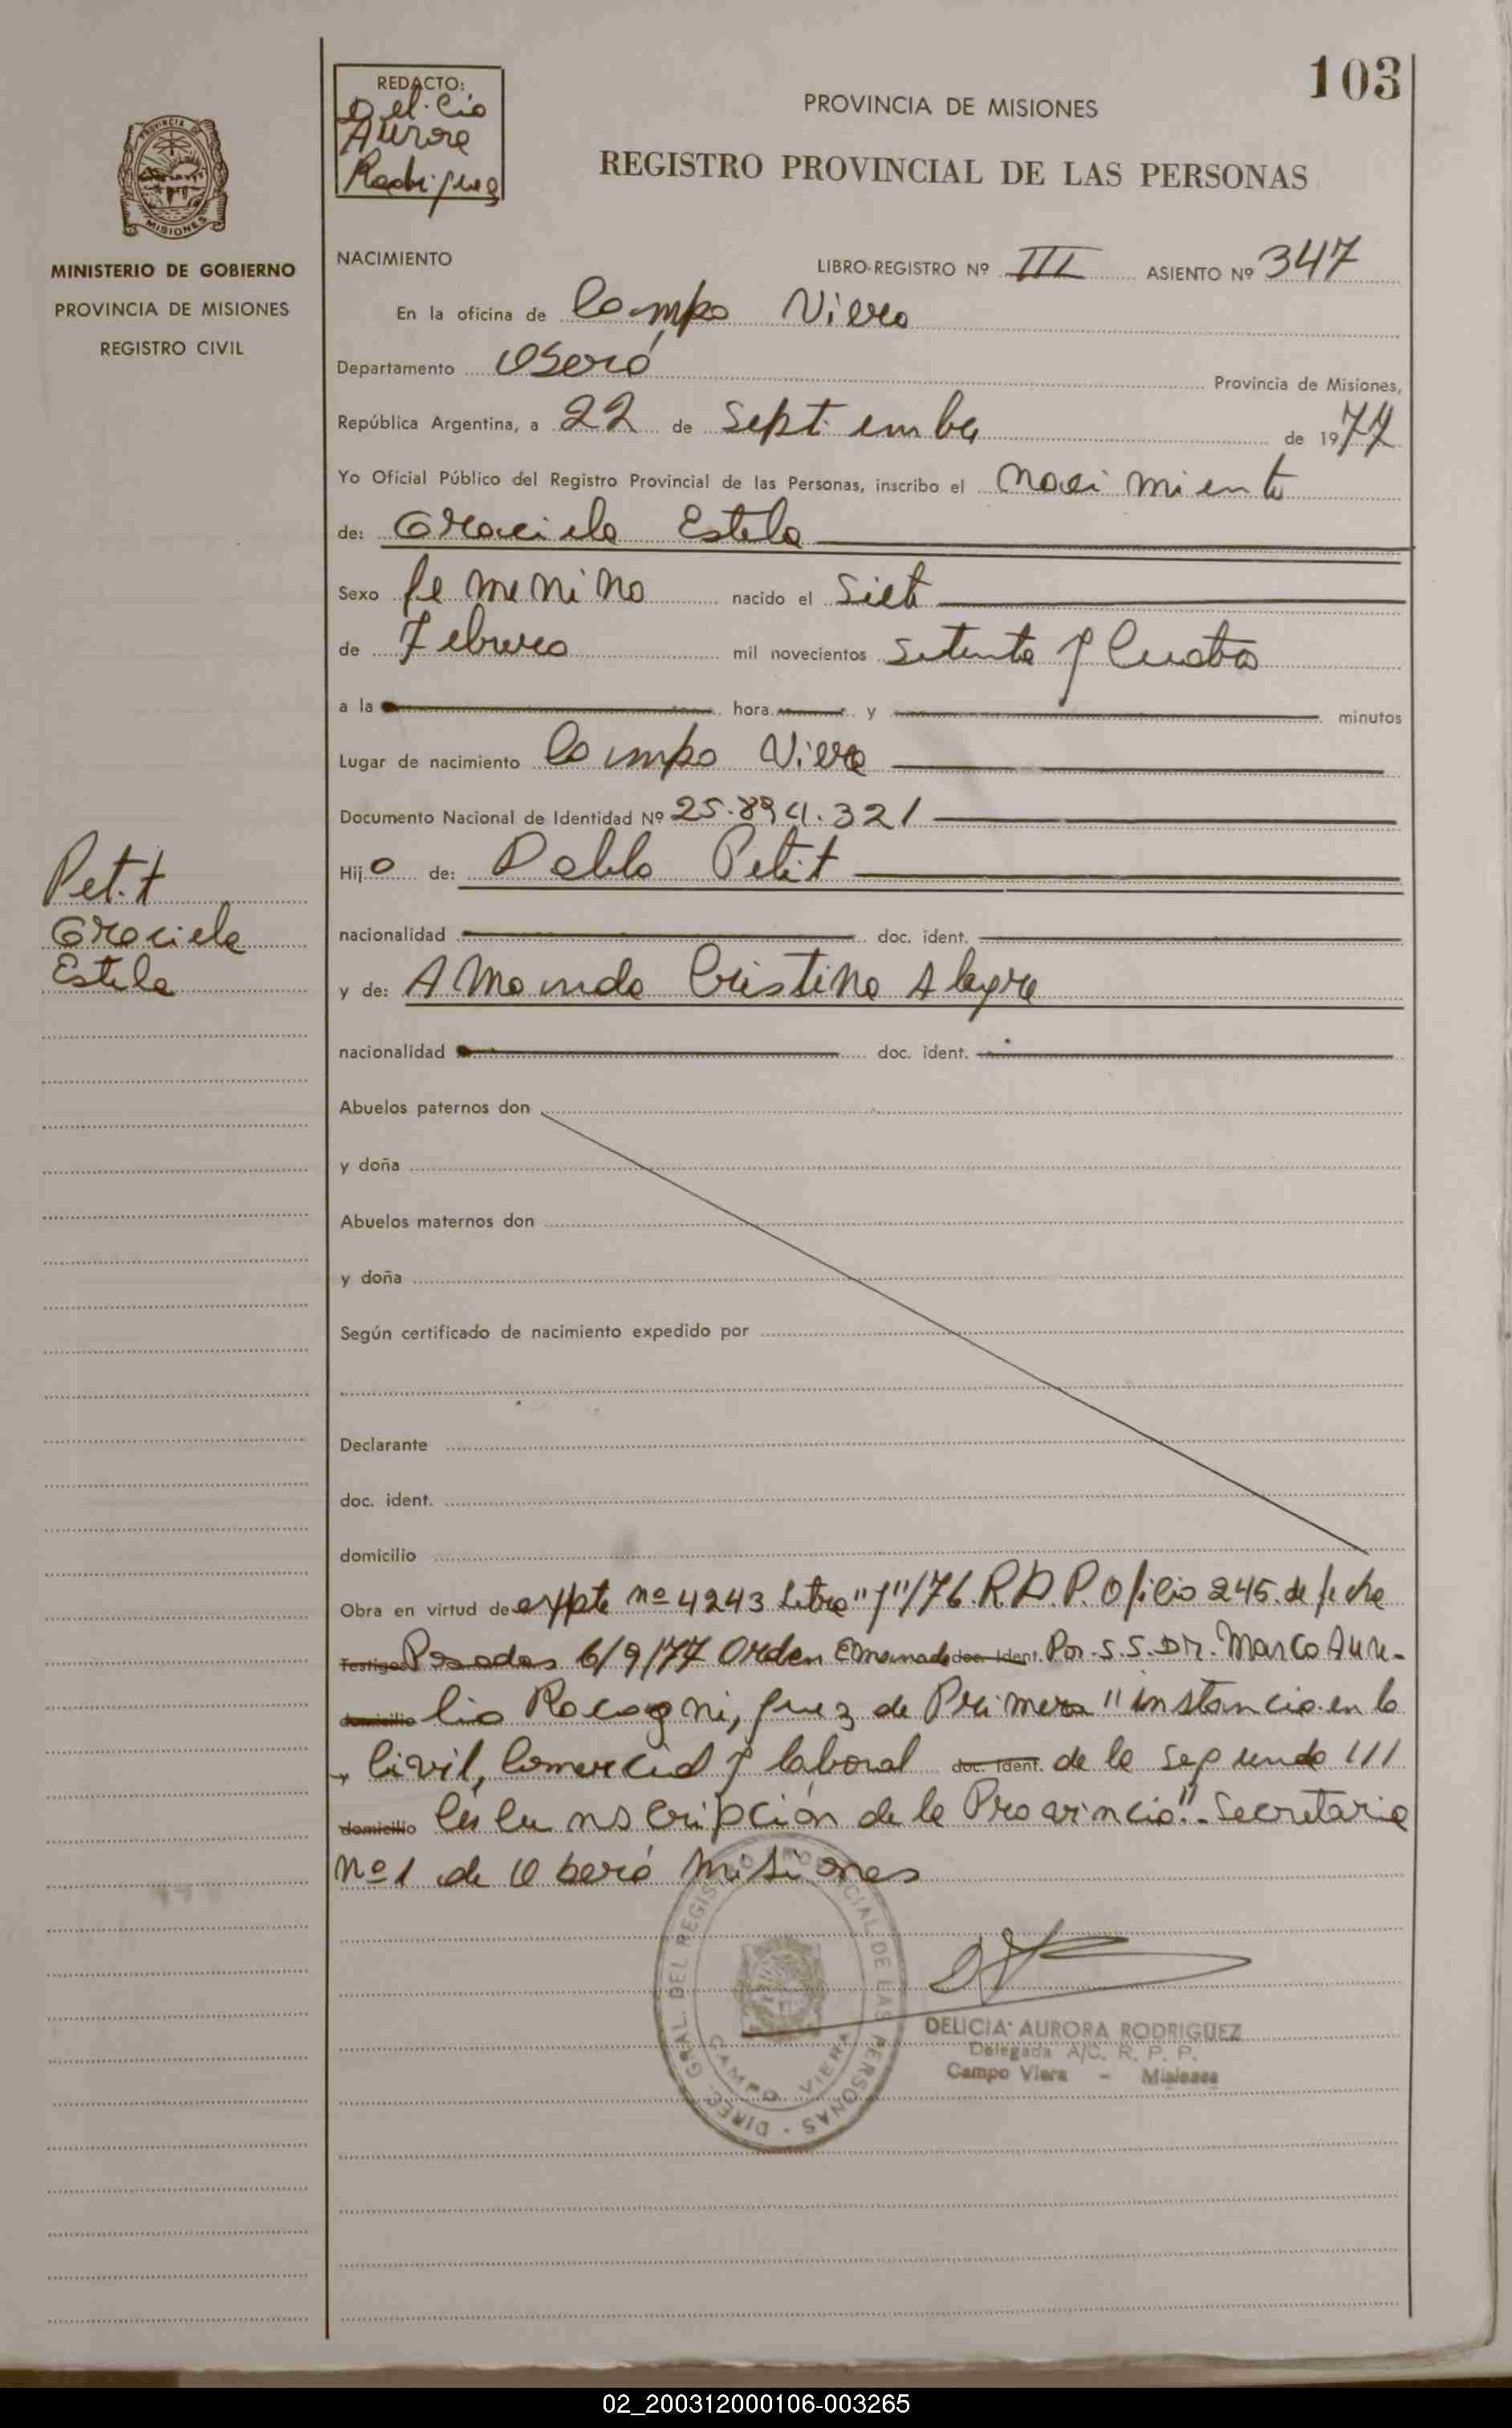 103
REDACTO:
Delicia
Aurora
Rodriguez
PROVINCIA DE MISIONES
REGISTRO PROVINCIAL DE LAS PERSONAS
PROVINCIA DE
MISIONES
MINISTERIO DE GOBIERNO
PROVINCIA DE MISIONES
REGISTRO CIVIL
NACIMIENTO
LIBRO-REGISTRO Nº III ASIENTO Nº 347
En la oficina de Campo Viera
Departamento Oberá Provincia de Misiones,
República Argentina, a 22 de Septiembre de 1977
Yo Oficial Público del Registro Provincial de las Personas, inscribo el Nacimiento
de: Graciela Estela
Sexo femenino nacido el Siete
de Febrero mil novecientos Setenta y Cuatro
a la hora y minutos
Lugar de nacimiento Campo Viera
Documento Nacional de Identidad Nº 25.894.321
Hija de: Pablo Petit
Petit
Graciela
Estela
nacionalidad doc. ident.
y de: Amanda Cristina Alegre
nacionalidad doc. ident.
Abuelos paternos don
y doña
Abuelos maternos don
y doña
Según certificado de nacimiento expedido por
Declarante
doc. ident.
domicilio
Obra en virtud de expte nº 4243 Letra "J"/76. R.P.P. Oficio 245. de fecha
Testigos Posadas 6/9/77 Orden Emanada doc. ident. Por. S.S. Dr. Marco Aure-
domicilio lio Juez de Primera "instancia en lo
Civil, Comercial y laboral doc. ident. de la segunda III
domicilio de la Provincia". Secretaria
Nº 1 de Oberá Misiones
DIREC. GRAL. DEL REGISTRO PROVINCIAL DE LAS PERSONAS
CAMPO VIERA
DELICIA AURORA RODRIGUEZ
Delegada A/C. R. P. P.
Campo Viera - Misiones
02_200312000106-003265